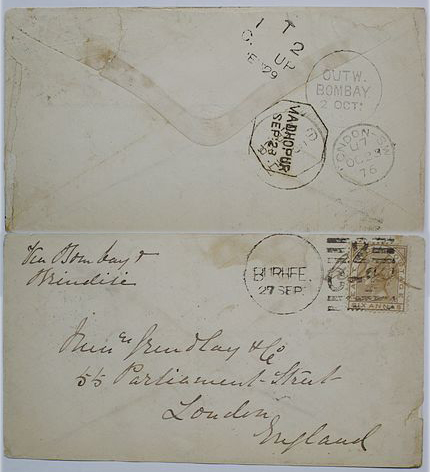 1 T 2
UP
29
OUTW.
BOMBAY
2 OCT
MADHOPUR
SEP 28
LONDON-S.W.
OC 23
76
Via Bombay &
Brindisi
BURHEE
27 SEP
SIX ANNAS
Grindlay & Co
55 Parliament Street
London
England